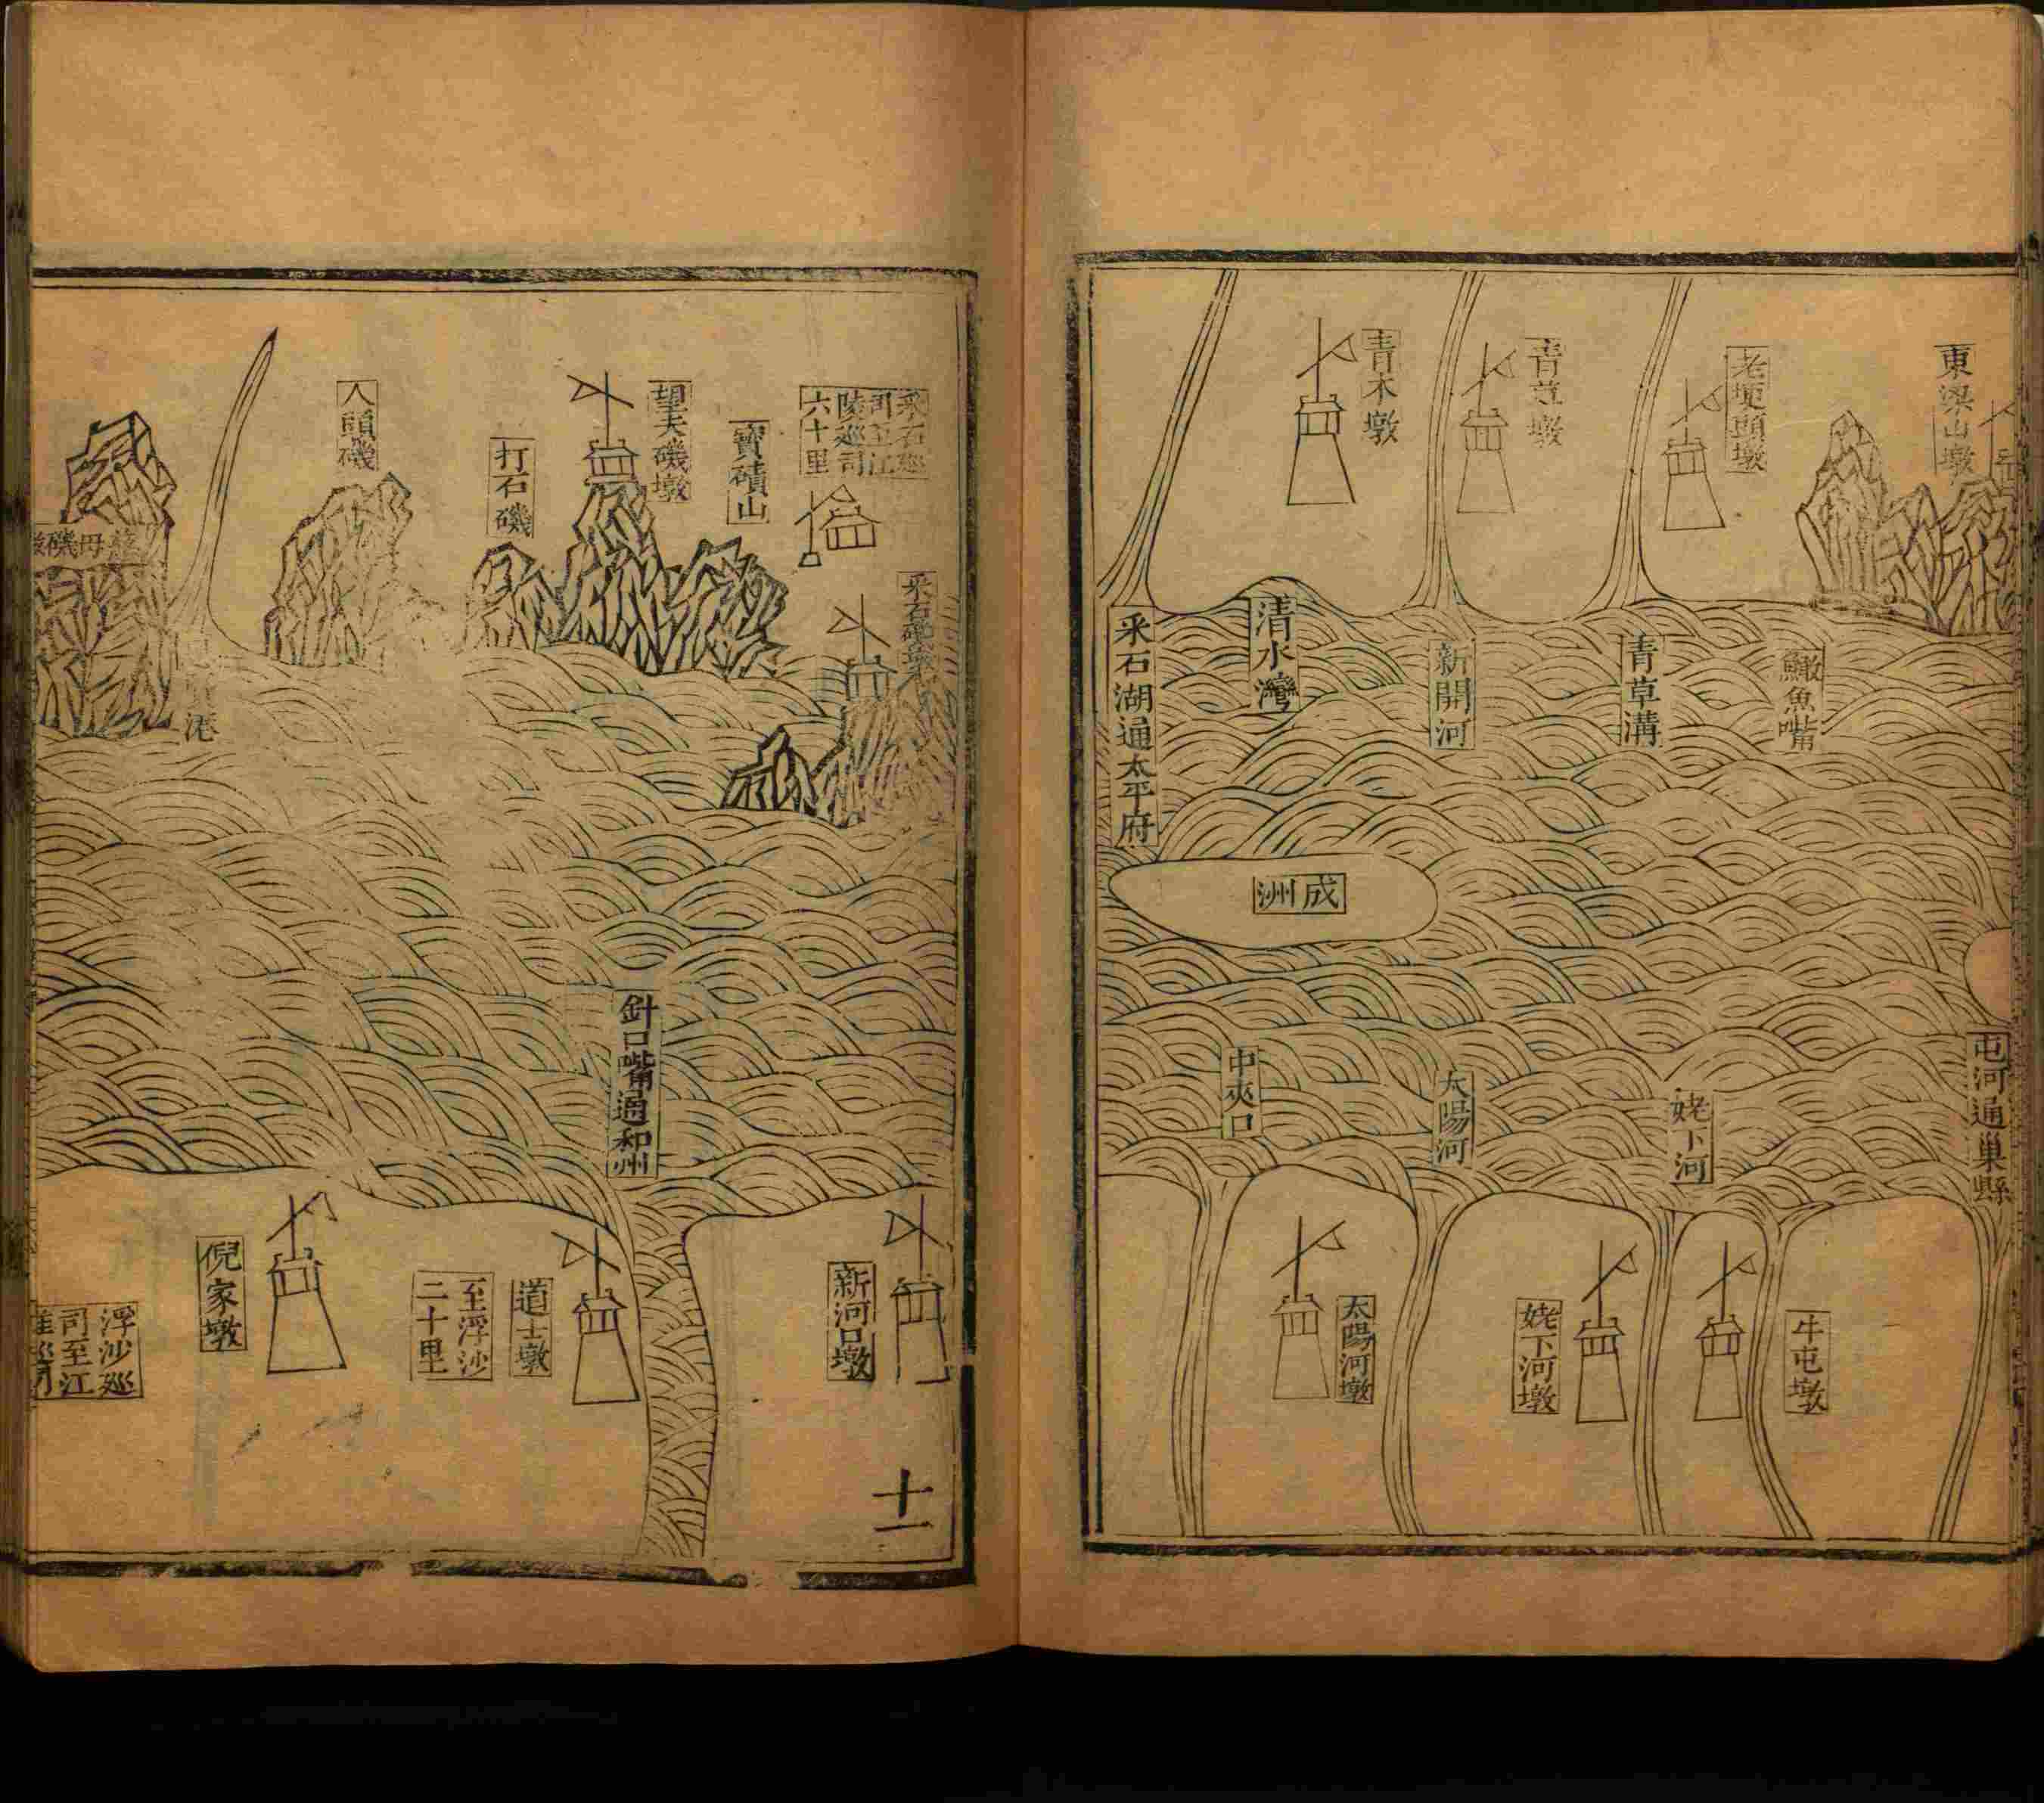 東梁山墩
老埂頭墩
青草墩
青木墩
鱖魚嘴
青草溝
新開河
清水灣
采石湖通太平府
成洲
屯河通巢縣
姥下河
太陽河
中夾口
牛屯墩
姥下河墩
太陽河墩
采石巡
司至江
陵巡司
六十里
寶磧山
望夫磯墩
打石磯
人頭磯
慈母磯
采石磯墩
港
針口嘴通和州
新河口墩
道士墩
至浮沙
二十里
倪家墩
浮沙巡
司至江
淮巡司
十一